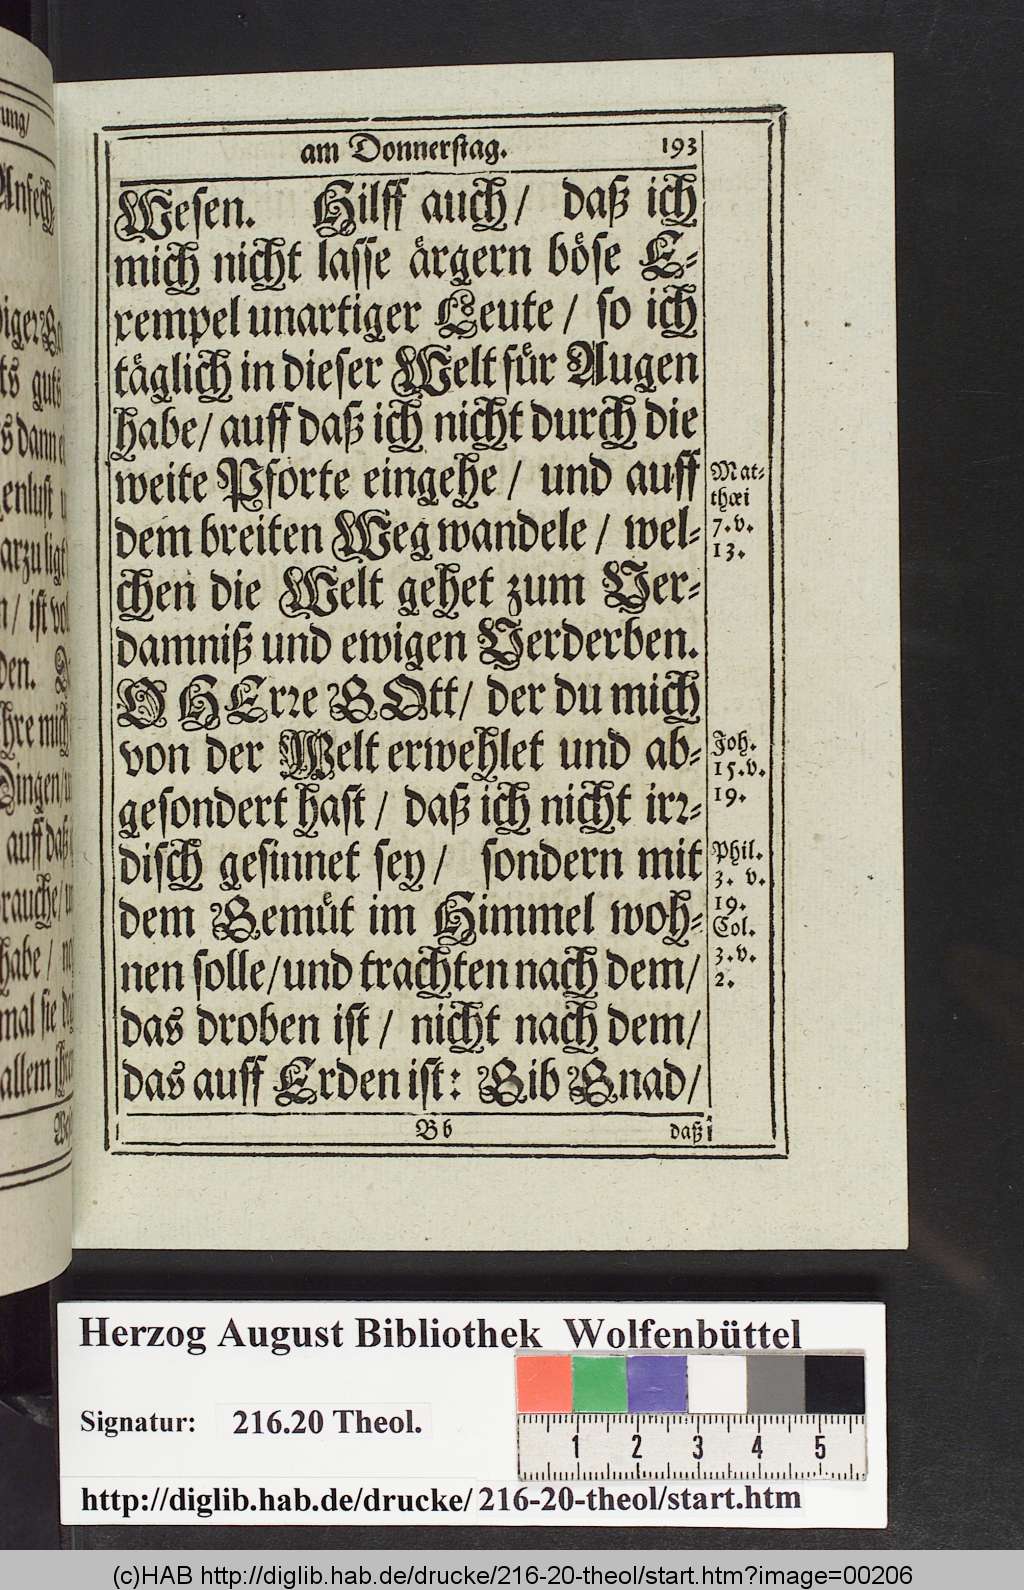 am Donnerstag. 193
Wesen. Hilff auch / daß ich
mich nicht lasse ärgern böse E-
xempel unartiger Leute / so ich
täglich in dieser Welt für Augen
habe / auff daß ich nicht durch die
weite Pforte eingehe / und auff
dem breiten Weg wandele / wel-
chen die Welt gehet zum Ver-
damniß und ewigen Verderben.
O HErre GOtt / der du mich
von der Welt erwehlet und ab-
gesondert hast / daß ich nicht irr-
disch gesinnet sey / sondern mit
dem Gemüt im Himmel woh-
nen solle / und trachten nach dem /
das droben ist / nicht nach dem /
das auff Erden ist: Gib Gnad /
Bb daß
Mat-
thæi
7.v.
13.
Joh.
15.v.
19.
Phil.
3. v.
19.
Col.
3.v.
2.
Anfech-
guts
auff daß
habe /
mal sie
allem
Herzog August Bibliothek Wolfenbüttel
Signatur: 216.20 Theol.
1 2 3 4 5
http://diglib.hab.de/drucke/216-20-theol/start.htm
(c)HAB http://diglib.hab.de/drucke/216-20-theol/start.htm?image=00206